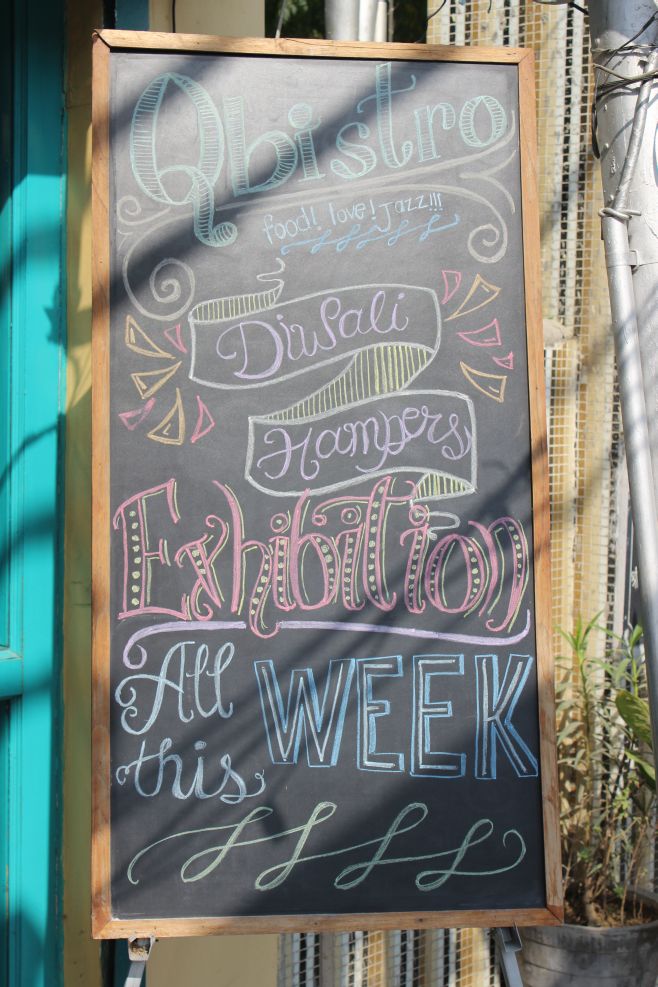 Qbistro
food! love! Jazz!!!
Diwali
Hampers
Exhibition
All this WEEK